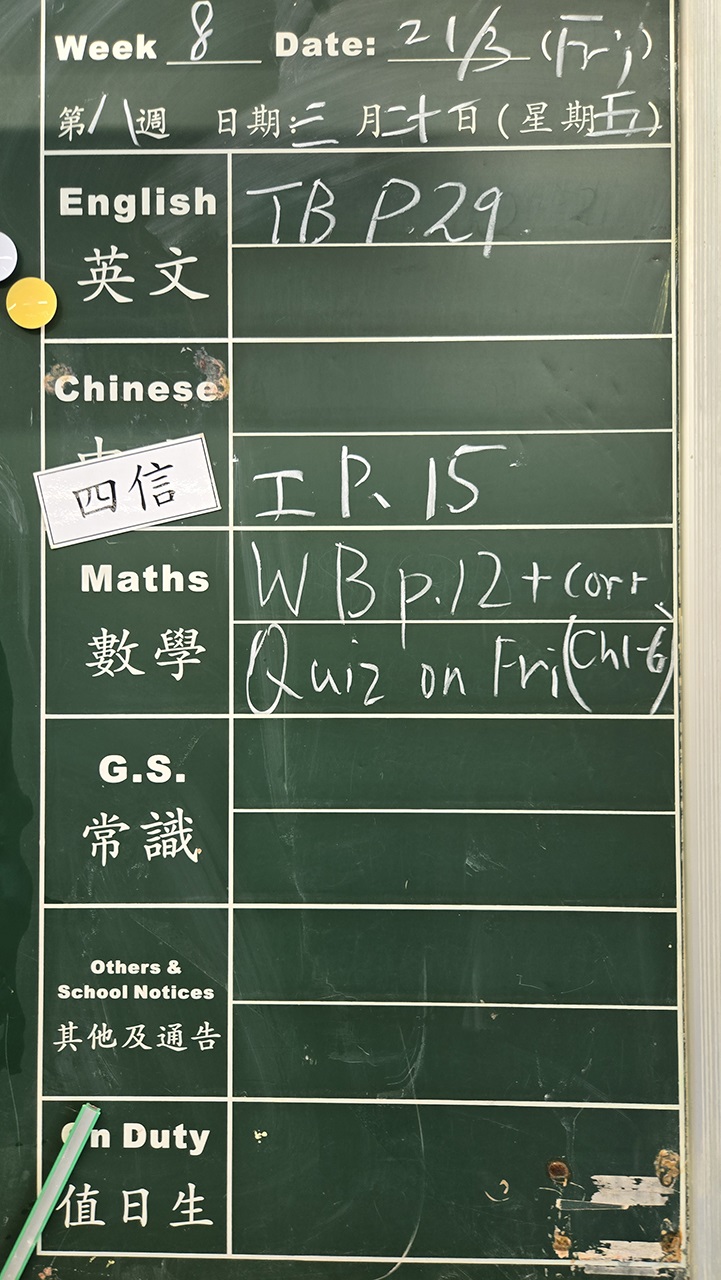 Week 8 Date: 21/3 (Fri)
第八週 日期:三月二十日(星期五)
English TB P.29
英文
Chinese
四信 工 P、15
Maths WB p.12 + corr.
數學 Quiz on Fri (Ch1-6)
G.S.
常識
Others &
School Notices
其他及通告
On Duty
值日生